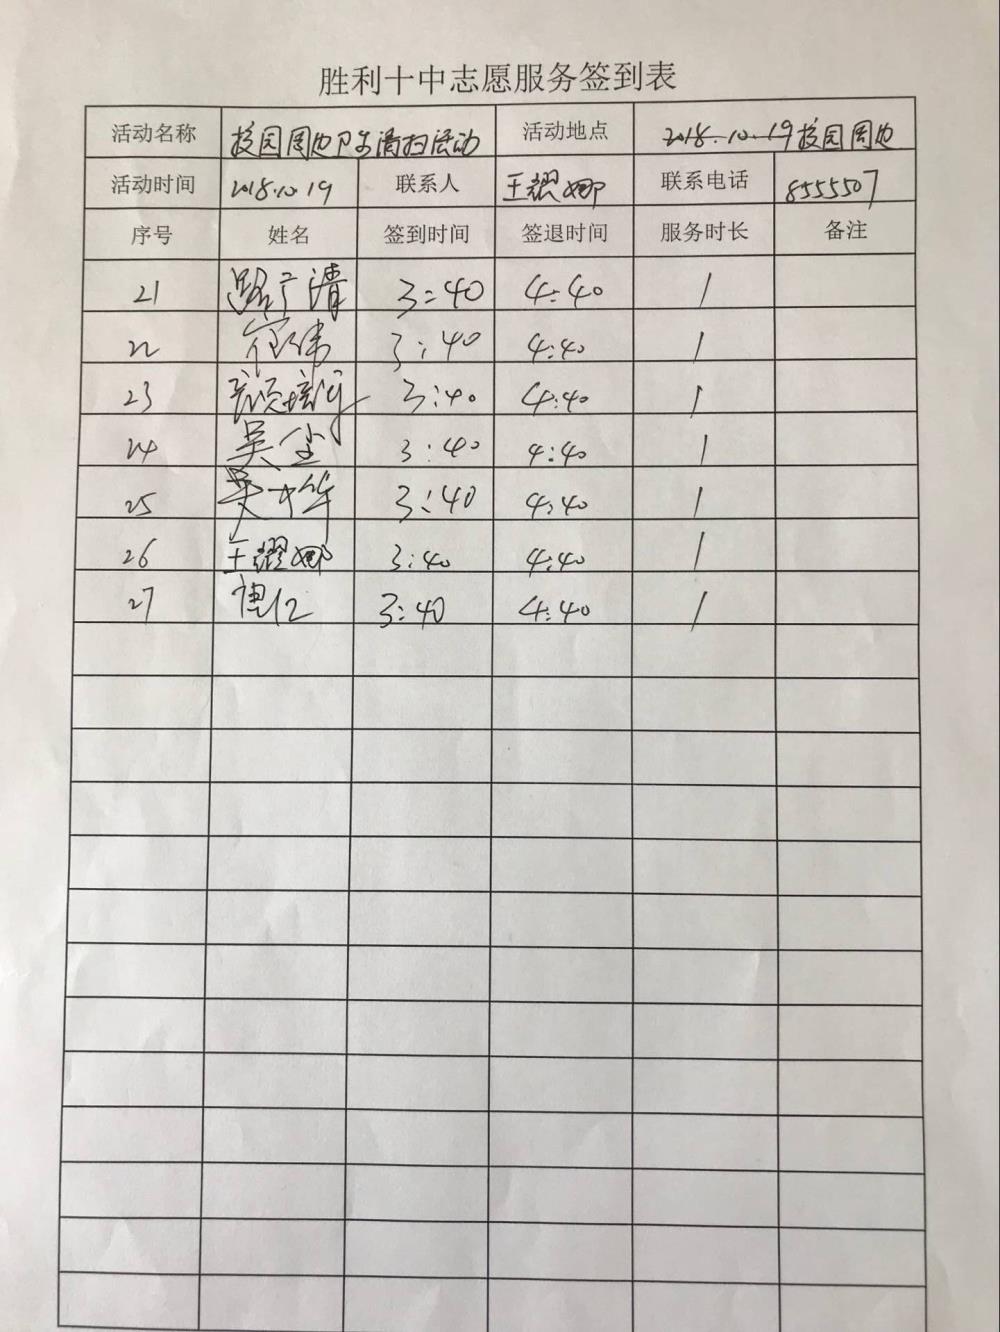 胜利十中志愿服务签到表
活动名称 校园周边卫生清扫活动 活动地点 2018.10.19校园周边
活动时间 2018.10.19 联系人 王耀娜 联系电话 8555507
序号 姓名 签到时间 签退时间 服务时长 备注
21 路广清 3:40 4:40 1
22 3:40 4:40 1
23 3:40 4:40 1
24 吴尘 3:40 4:40 1
25 吴十华 3:40 4:40 1
26 王耀娜 3:40 4:40 1
27 3:40 4:40 1